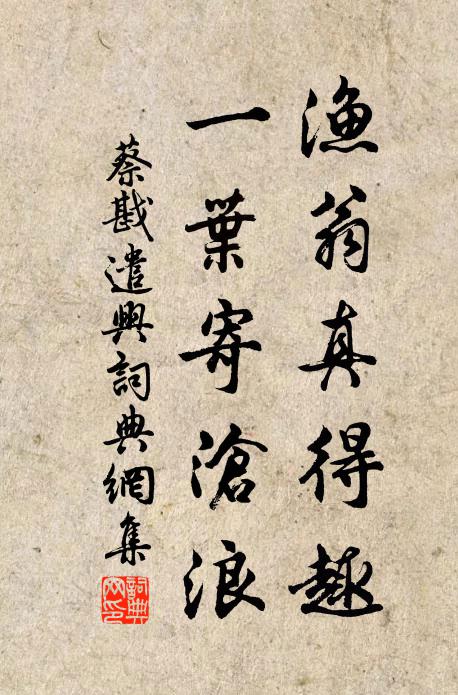 漁翁真得趣
一葉寄滄浪
蔡戡遣興詞典網集